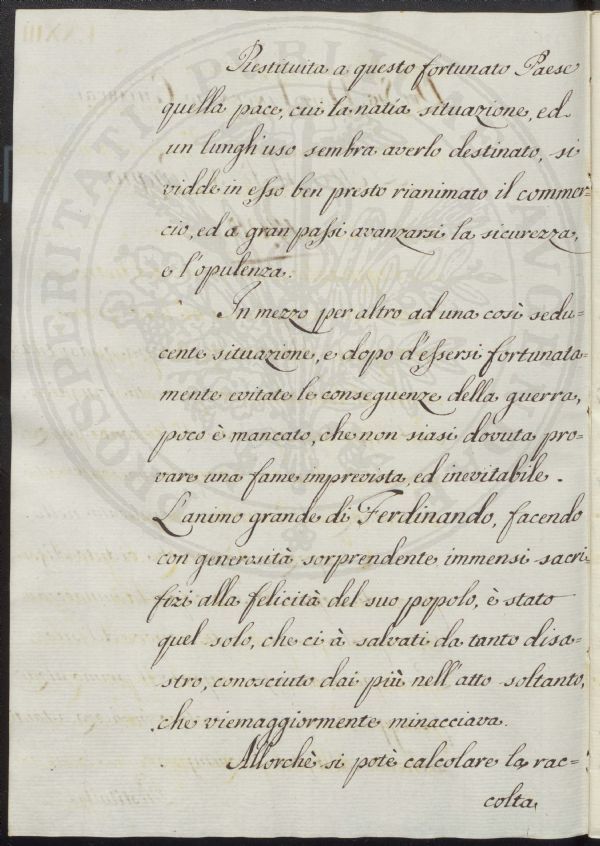 Restituita a questo fortunato Paese
quella pace, cui la natia situazione, ed
un lungh'uso sembra averlo destinato, si
vidde in esso ben presto rianimato il commer-
cio, ed a gran passi avanzarsi la sicurezza,
e l'opulenza.
In mezzo per altro ad una così sedu-
cente situazione, e dopo d'essersi fortunata-
mente evitate le conseguenze della guerra,
poco è mancato, che non siasi dovuta pro-
vare una fame imprevista, ed inevitabile.
L'animo grande di Ferdinando, facendo
con generosità sorprendente immensi sacri-
fizi alla felicità del suo popolo, è stato
quel solo, che ci à salvati da tanto disa-
stro, conosciuto dai più nell'atto soltanto,
che viemaggiormente minacciava.
Allorchè si potè calcolare la rac-
colta
PROSPERITATI PUBLICAE